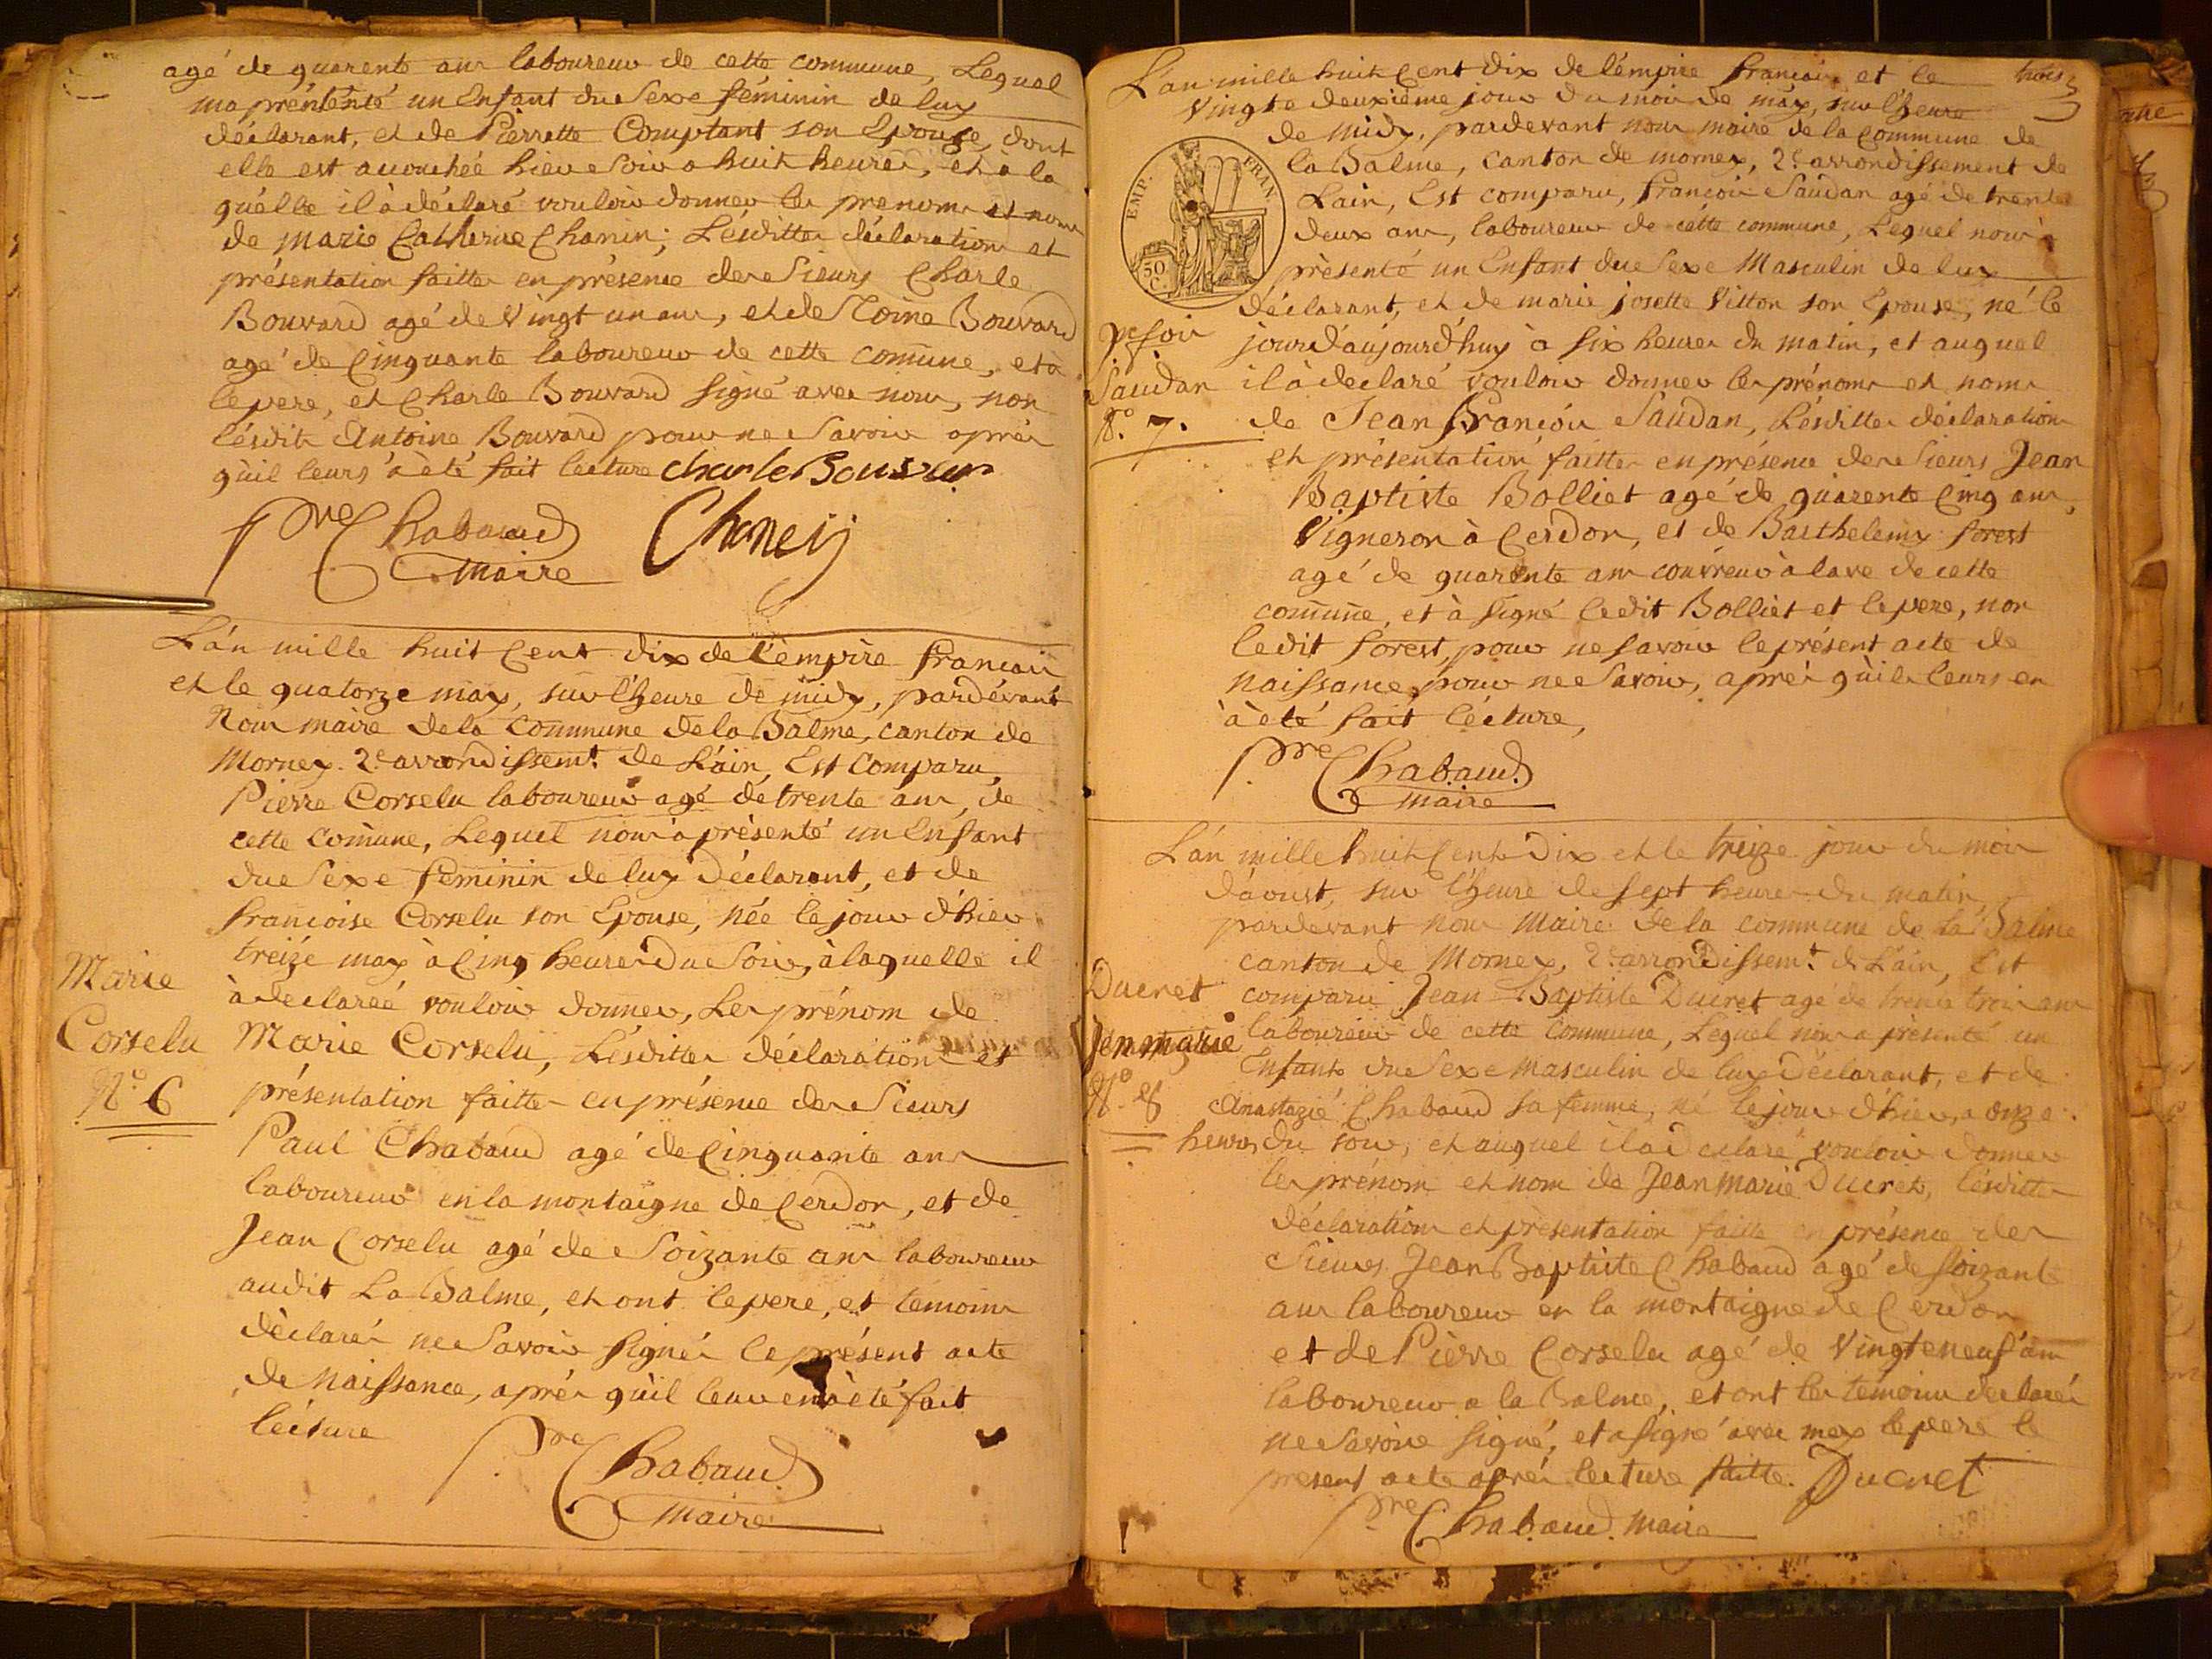 agé de quarente ans laboureur de cette commune, Lequel
ma présenté un Enfant du Sexe féminin de luy
déclarant, et de Pierrette Comptant son Epouse, dont
elle est accouchée hier soir a huit heures, et a la
quélle il à déclaré vouloir donner les prenoms et noms
de Marie Catherine Chanin; Lésdittes déclaration et
présentation faitte en présence des Sieurs Charle
Bouvard agé de Vingt un ans, et de Toine Bouvard
agé de Cinquante laboureur de cette comune, et à
le pere, et Charle Bouvard signé avec nous, non
lésdit Antoine Bouvard pour ne Savoir aprés
qu'il leurs à été fait lecture Charle Bouvar
Pre Chabaud
maire
L'án mille huit Cent dix de l'èmpire francais
et le quatorze may, sur l'heure de midy, pardévant
Nous maire de la Commune de la Balme, canton de
Mornex. 2e arrondissemt. de L'ain, Est Comparu,
Pierre Corselu laboureur agé de trente ans, de
cette comune, Lequel nous à présenté un Enfant
du Sexe feminin de luy Déclarant, et de
francoise Corselu son Epouse, née le jour d'hier
treize may à Cinq heures Du Soir, à laquelle il
à declareé vouloir donner, Les prénom de
Marie Corselu, Lésditte déclaration et
présentation faitte en présence des Sieurs
Paul Chabaud agé de Cinquante ans
laboureur en la montaigne de Cerdon, et de
Jean Corselu agé de Soizante ans laboureur
audit La Balme, et ont le pere, et temoins
dèclarés ne Savoir signér le présent acte
de Naissance, aprés qu'il leur en à été fait
lécture
Marie
Corselu
No. 6
Pre Chabaud
Maire
L'an mille huit Cent dix de l'émpire francais et le
Vingte deuxième jour du mois de may, sur l'heure
de midy, pardevant nous maire de la Commune de
la Balme, canton de mornex, 2e arrondissement de
Lain, Est comparu, francois Saudan agé de trente
deux ans, laboureur de cétte commune, Lequel nous à
présenté un Enfant du Sexe Masculin de luy
déclarant, et de marie josette Vitton son Epouse, né le
jour d'aujourd'huy à six heures du matin, et auquel
il à declaré vouloir donner les prénoms et noms
de Jean francois Saudan, Lésdittes déclaration
et présentation faitte en présence des Sieurs Jean
Baptiste Bolliet agé de quarente Cinq ans,
Vigneron à Cerdon, et de Barthelemy forest
agé de quarente ans couvreur à lave de cette
comune, et à signé ledit Bolliet et le pere, non
ledit forest, pour ne savoir le présent acte de
Naissance, pour ne Savoir, aprés qu'ils leurs en
à été fait lécture,
EMP. FRAN.
50 C.
Saudan
No. 7.
Pre Chabaud
maire
L'án mille huit Cent Dix et le treize jour du mois
d'aoust, sur l'heure de sept heures du matin,
pardevant nous Maire de la commune de La Balme
canton de Mornex, 2e arrondissemt. de L'ain, Est
comparu Jean Baptiste Ducret agé de trente trois ans
laboureur de cette Commune, Lequel nous a présenté un
Enfant du Sexe Masculin de luy Déclarant, et de
Anastazie Chabaud sa femme, né le jour d'hier, a onze
heures du soir, et auquel il a declaré vouloir donner
les prénom et nom de Jean Marie Ducret, lésditte
déclaration et présentation faitte en présence des
Sieurs Jean Baptiste Chabaud agé de soizante
ans laboureur en la montaigne de Cerdon
et de Pièrre Corselu agé de Vingteneuf ans
laboureur a la Balme, et ont les témoins declarés
ne Savoir signé, et a signé avec moy le pere le
present acte aprés lecture faitte. Ducret
Ducret
Jenmarie
No. 8
Pre Chabaud. maire